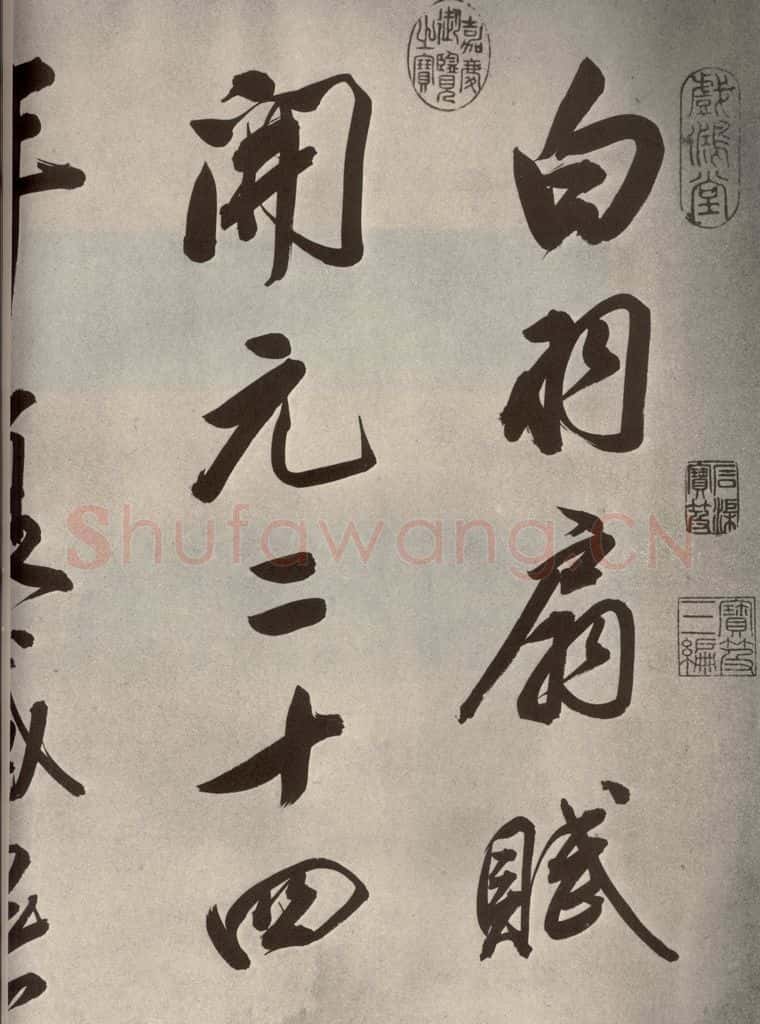 白羽扇賦
開元二十四
年夏盛
戲鴻堂
嘉慶御覽之寶
寶笈三編
Shufawang.CN